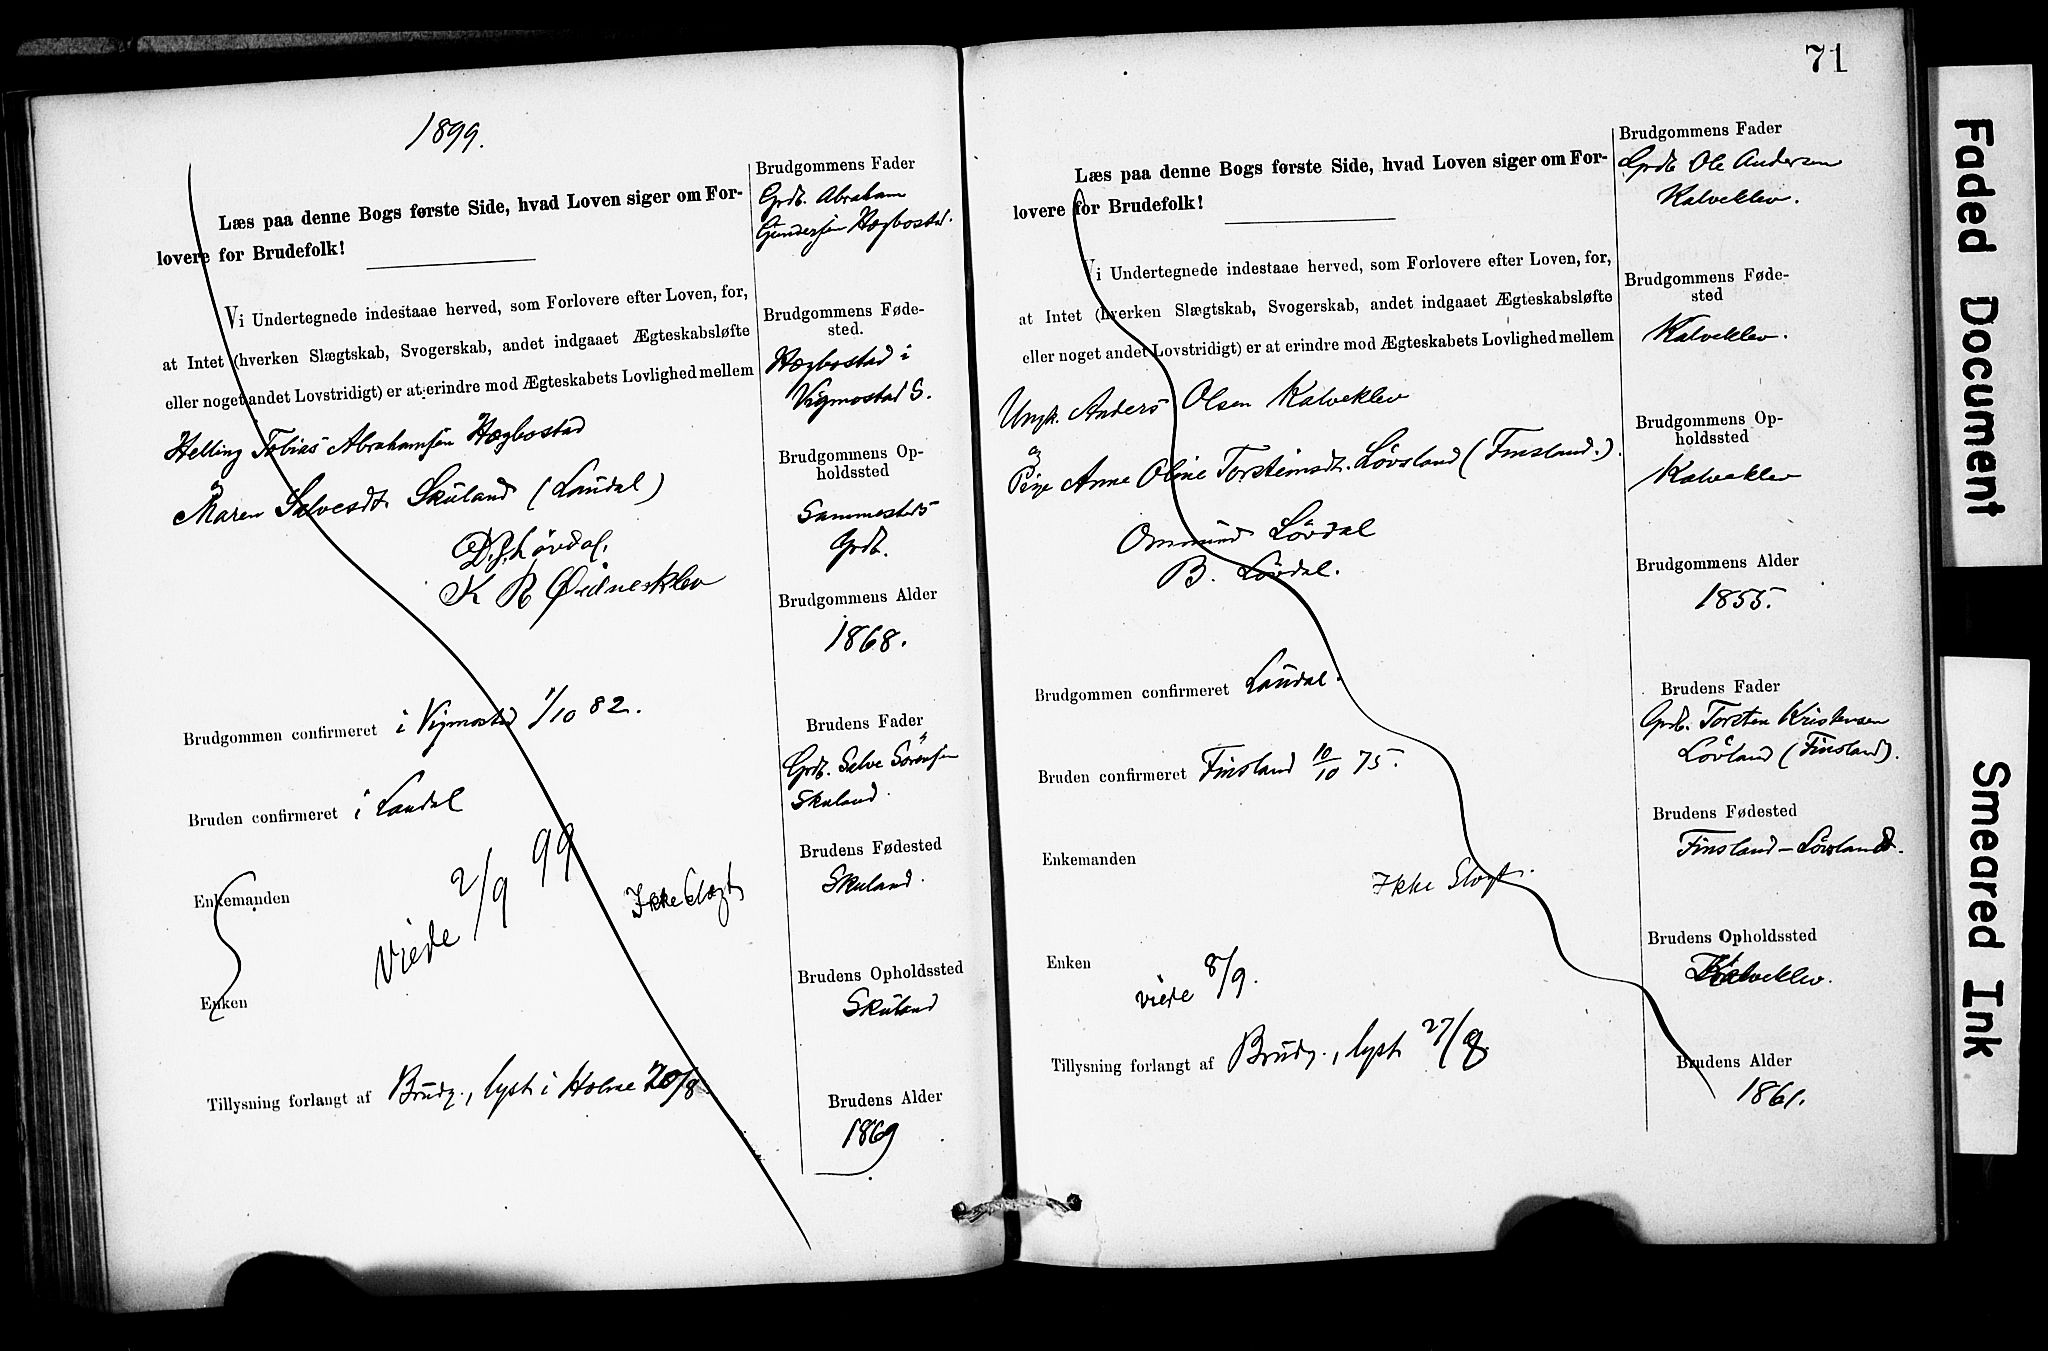 1899.
Læs paa denne Bogs første Side, hvad Loven siger om For-
lovere for Brudefolk!
Vi Undertegnede indestaae herved, som Forlovere efter Loven, for,
at Intet (hverken Slægtskab, Svogerskab, andet indgaaet Ægteskabsløfte
eller noget andet Lovstridigt) er at erindre mod Ægteskabets Lovlighed mellem
Helling Tobias Abrahamsen Hægbostad
og
Maren Salvesdt. Skuland (Laudal)
Løvdal.
K R Øidnesklev
Brudgommen confirmeret i Vigmostad 1/10 82.
Bruden confirmeret i Laudal
Enkemanden
viede 2/9 99
Ikke Slægt
Enken
Tillysning forlangt af Brudg., lyst i Holme 20/8
Brudgommens Fader
Grdb. Abraham
Gundersen Hægbostad.
Brudgommens Føde-
sted.
Hægbostad i
Vigmostad S.
Brudgommens Op-
holdssted
Sammesteds
Grdb.
Brudgommens Alder
1868.
Brudens Fader
Grdb. Salve Sørensen
Skuland.
Brudens Fødested
Skuland.
Brudens Opholdssted
Skuland
Brudens Alder
1869
71
Læs paa denne Bogs første Side, hvad Loven siger om For-
lovere for Brudefolk!
Vi Undertegnede indestaae herved, som Forlovere efter Loven, for,
at Intet (hverken Slægtskab, Svogerskab, andet indgaaet Ægteskabsløfte
eller noget andet Lovstridigt) er at erindre mod Ægteskabets Lovlighed mellem
Ungk. Anders Olsen Kalveklev
og
Pige Anne Oline Torsteinsdt. Løvsland (Finsland.).
Ommund Løvdal
B. Løvdal.
Brudgommen confirmeret Laudal.
Bruden confirmeret Finsland 10/10 75.
Enkemanden
Ikke Slægt.
Enken
viede 8/9.
Tillysning forlangt af Brudg., lyst 27/8.
Brudgommens Fader
Grdb. Ole Andersen
Kalveklev.
Brudgommens Føde-
sted
Kalveklev.
Brudgommens Op-
holdssted
Kalveklev
Brudgommens Alder
1855.
Brudens Fader
Grdb. Torsten Kristensen
Løvland (Finsland).
Brudens Fødested
Finsland – Løvsland.
Brudens Opholdssted
Kalveklev.
Brudens Alder
1861.
Faded Document
Smeared Ink